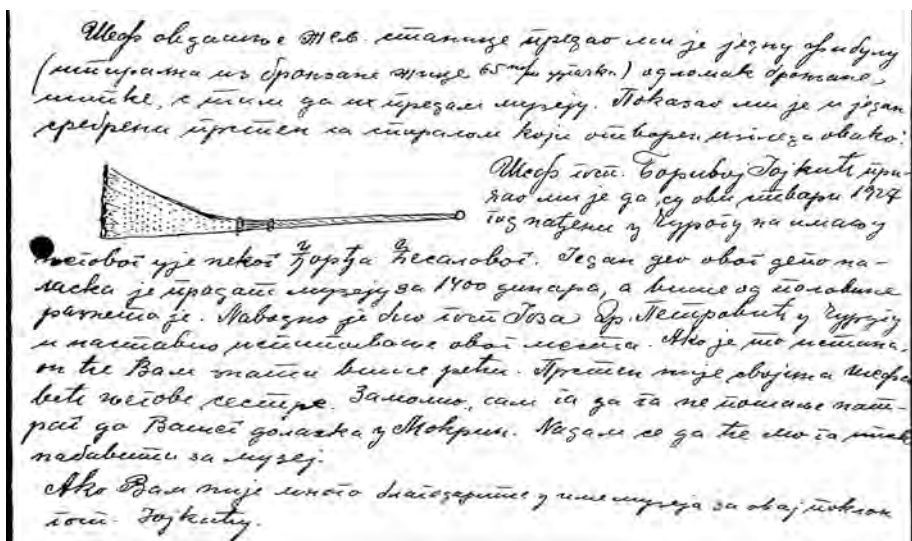 Шеф овдашње жел. станице предао ми је једну фибулу
(спирална из бронзане жице 65 m/m) одломак бронзане
шипке, с тим да их предам музеју. Показао ми је и један
сребрени прстен са спиралом који отворен изгледа овако:
Шеф госп. Боривој Гојкић при-
знао ми је да су ови ствари 1927
год нађени у Чуругу на имању
његовог ује неког Ђорђа Ћесаловог. Један део овог депо на-
ласка је продат музеју за 1400 динара, а више од половине
разнета је. Наводно је био госп Јоза Др. Петровић у Чуругу
и наставио испитивање овог места. Ако је то истина,
он ће Вам знати више рећи. Прстен није својина шефа
већ његове сестре. Замолио сам га да га не пошаље нат-
раг до Вашег доласка у Мокрин. Надам се да ће мо га
набавити за музеј.
Ако Вам није много благодарите у име музеја за овај поклон
госп. Гојкићу.